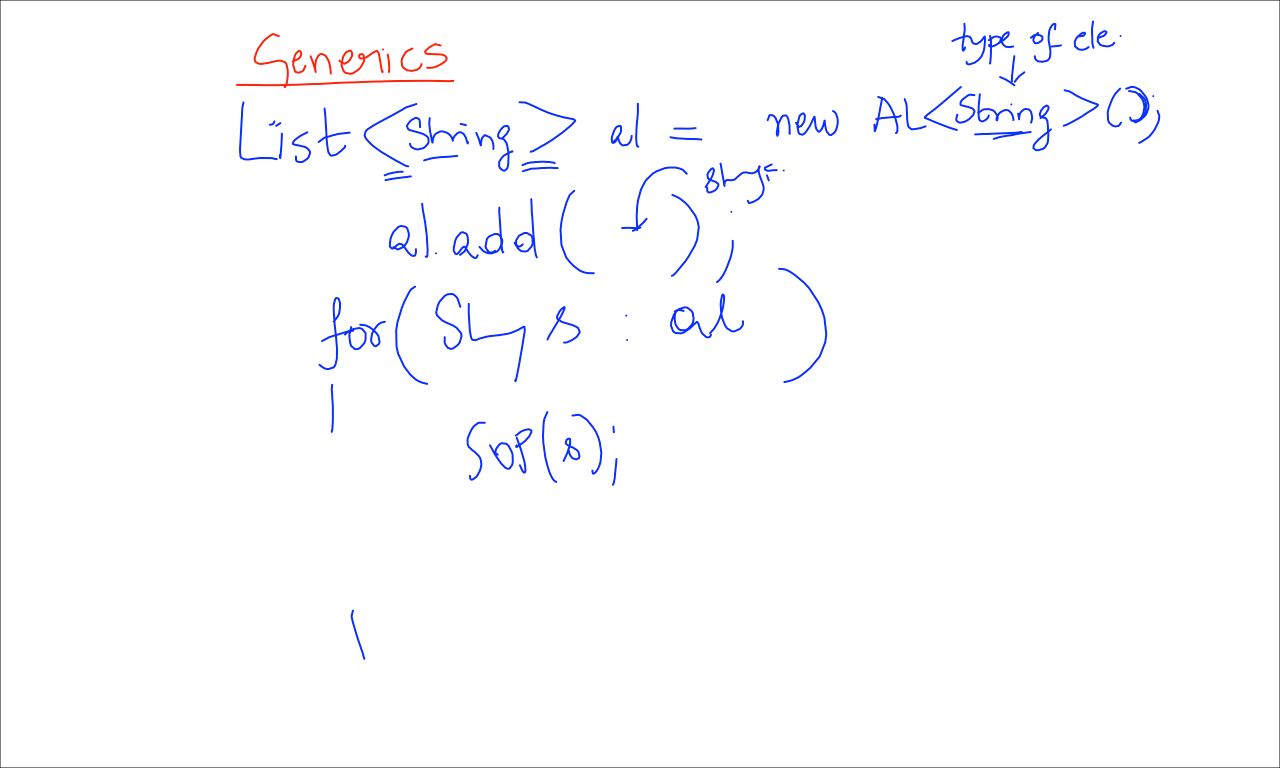 Generics
type of ele.
List <String> al = new AL<String>();
al.add( );
for( s : al )
SOP(s);